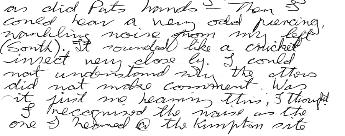 as did Pats hands — Then I
could hear a very odd piercing,
warbling noise from my left
(South). It sounded like a cricket
insect very close by. I could
not understand why the others
did not make comment. Was
it just me hearing this, I thought.
I recognised the noise as the
one I heard @ the Kimpton site